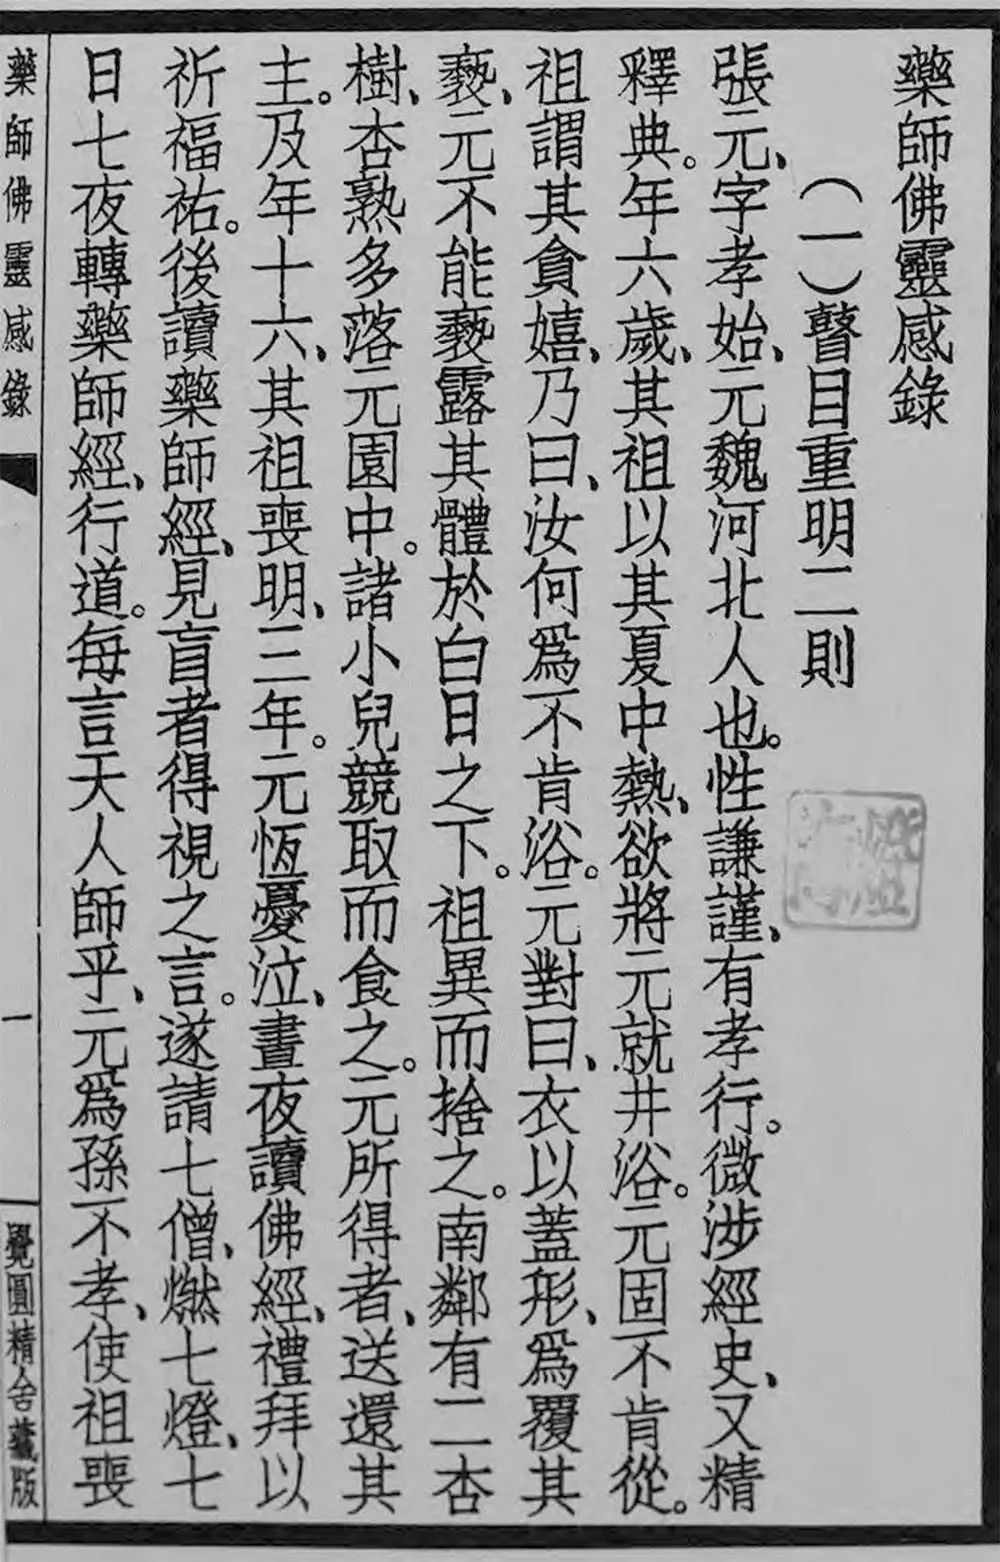 藥師佛靈感錄
（一）瞽目重明二則
張元、字孝始、元魏河北人也。性謙謹、有孝行。微涉經史、又精
釋典。年六歲、其祖以其夏中熱、欲將元就井浴。元固不肯從。
祖謂其貪嬉、乃曰、汝何爲不肯浴。元對曰、衣以蓋形、爲覆其
褻、元不能褻露其體於白日之下。祖異而捨之。南鄰有二杏
樹、杏熟多落元園中。諸小兒競取而食之。元所得者、送還其
主。及年十六、其祖喪明、三年。元恆憂泣、晝夜讀佛經、禮拜以
祈福祐。後讀藥師經、見盲者得視之言。遂請七僧、燃七燈、七
日七夜轉藥師經、行道。每言天人師乎、元爲孫不孝、使祖喪
藥師佛靈感錄
一
覺圓精舍藏版